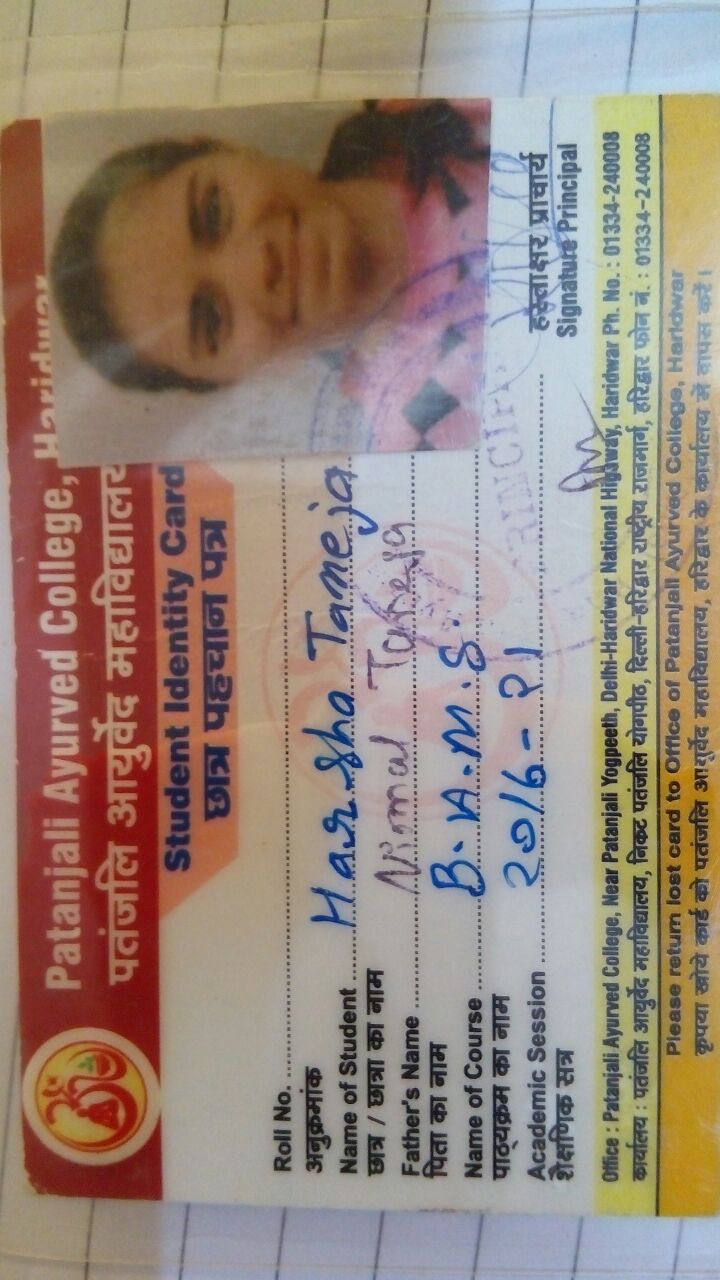 Patanjali Ayurved College, Haridwar
पतंजलि आयुर्वेद महाविद्यालय
Student Identity Card
छात्र पहचान पत्र
Roll No.
अनुक्रमांक
Name of Student Harsha Taneja
छात्र / छात्रा का नाम
Father's Name Nirmal Taneja
पिता का नाम
Name of Course B.A.M.S.
पाठ्यक्रम का नाम
Academic Session 2016-21
शैक्षणिक सत्र
हस्ताक्षर प्राचार्य
Signature Principal
Office : Patanjali Ayurved College, Near Patanjali Yogpeeth, Delhi-Haridwar National Highway, Haridwar Ph. No. : 01334-240008
कार्यालय : पतंजलि आयुर्वेद महाविद्यालय, निकट पतंजलि योगपीठ, दिल्ली-हरिद्वार राष्ट्रीय राजमार्ग, हरिद्वार फोन नं. : 01334-240008
Please return lost card to Office of Patanjali Ayurved College, Haridwar
कृपया खोये कार्ड को पतंजलि आयुर्वेद महाविद्यालय, हरिद्वार के कार्यालय में वापस करें।